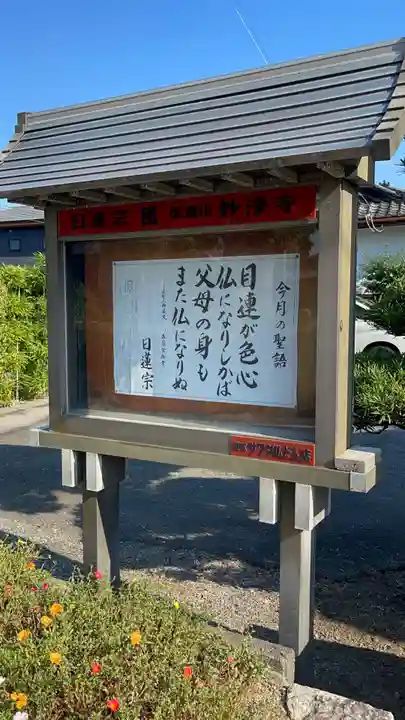 日蓮宗 妙浄寺
今月の聖語
目連が色心
仏になりしかば
父母の身も
また仏になりぬ
日蓮宗